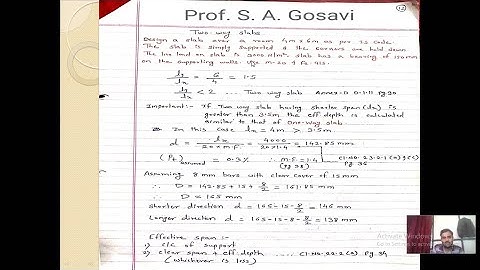 Prof. S. A. Gosavi
Two-way slabs
Design a slab over a room 4m x 6m as per IS code.
The slab is simply supported & the corners are held down.
The live load on slab is 3000 N/m². slab has a bearing of 150mm
on the supporting walls. Use M-20 & Fe-415.
ly/lx = 6/4 = 1.5
ly/lx < 2 ... Two way slab Annex-D D-1.11 Pg 90
Important:- If Two way slab having shorter span (lx) is
greater than 3.5m the eff. depth is calculated
similar to that of one-way slab.
In this case lx = 4m > 3.5m
d = lx/20×m.f. = 4000/20×1.4 = 142.85 mm
(Pt)assumed = 0.3% ∴ m.f = 1.4 (Pg 38)
Pg 36
Assuming 8 mm bars with clear cover of 15mm
∴ D = 142.85 + 15 + 8/2 = 161.85 mm
∴ D = 165 mm
Shorter direction d = 165-15-8/2 = 146 mm
Longer direction d = 165-15-8-8/2 = 138 mm
Effective span :-
1) c/c of support
2) clear span + eff. depth ..... Cl. No. 22.2(a) Pg. 34
(whichever is less)
Activate Windows